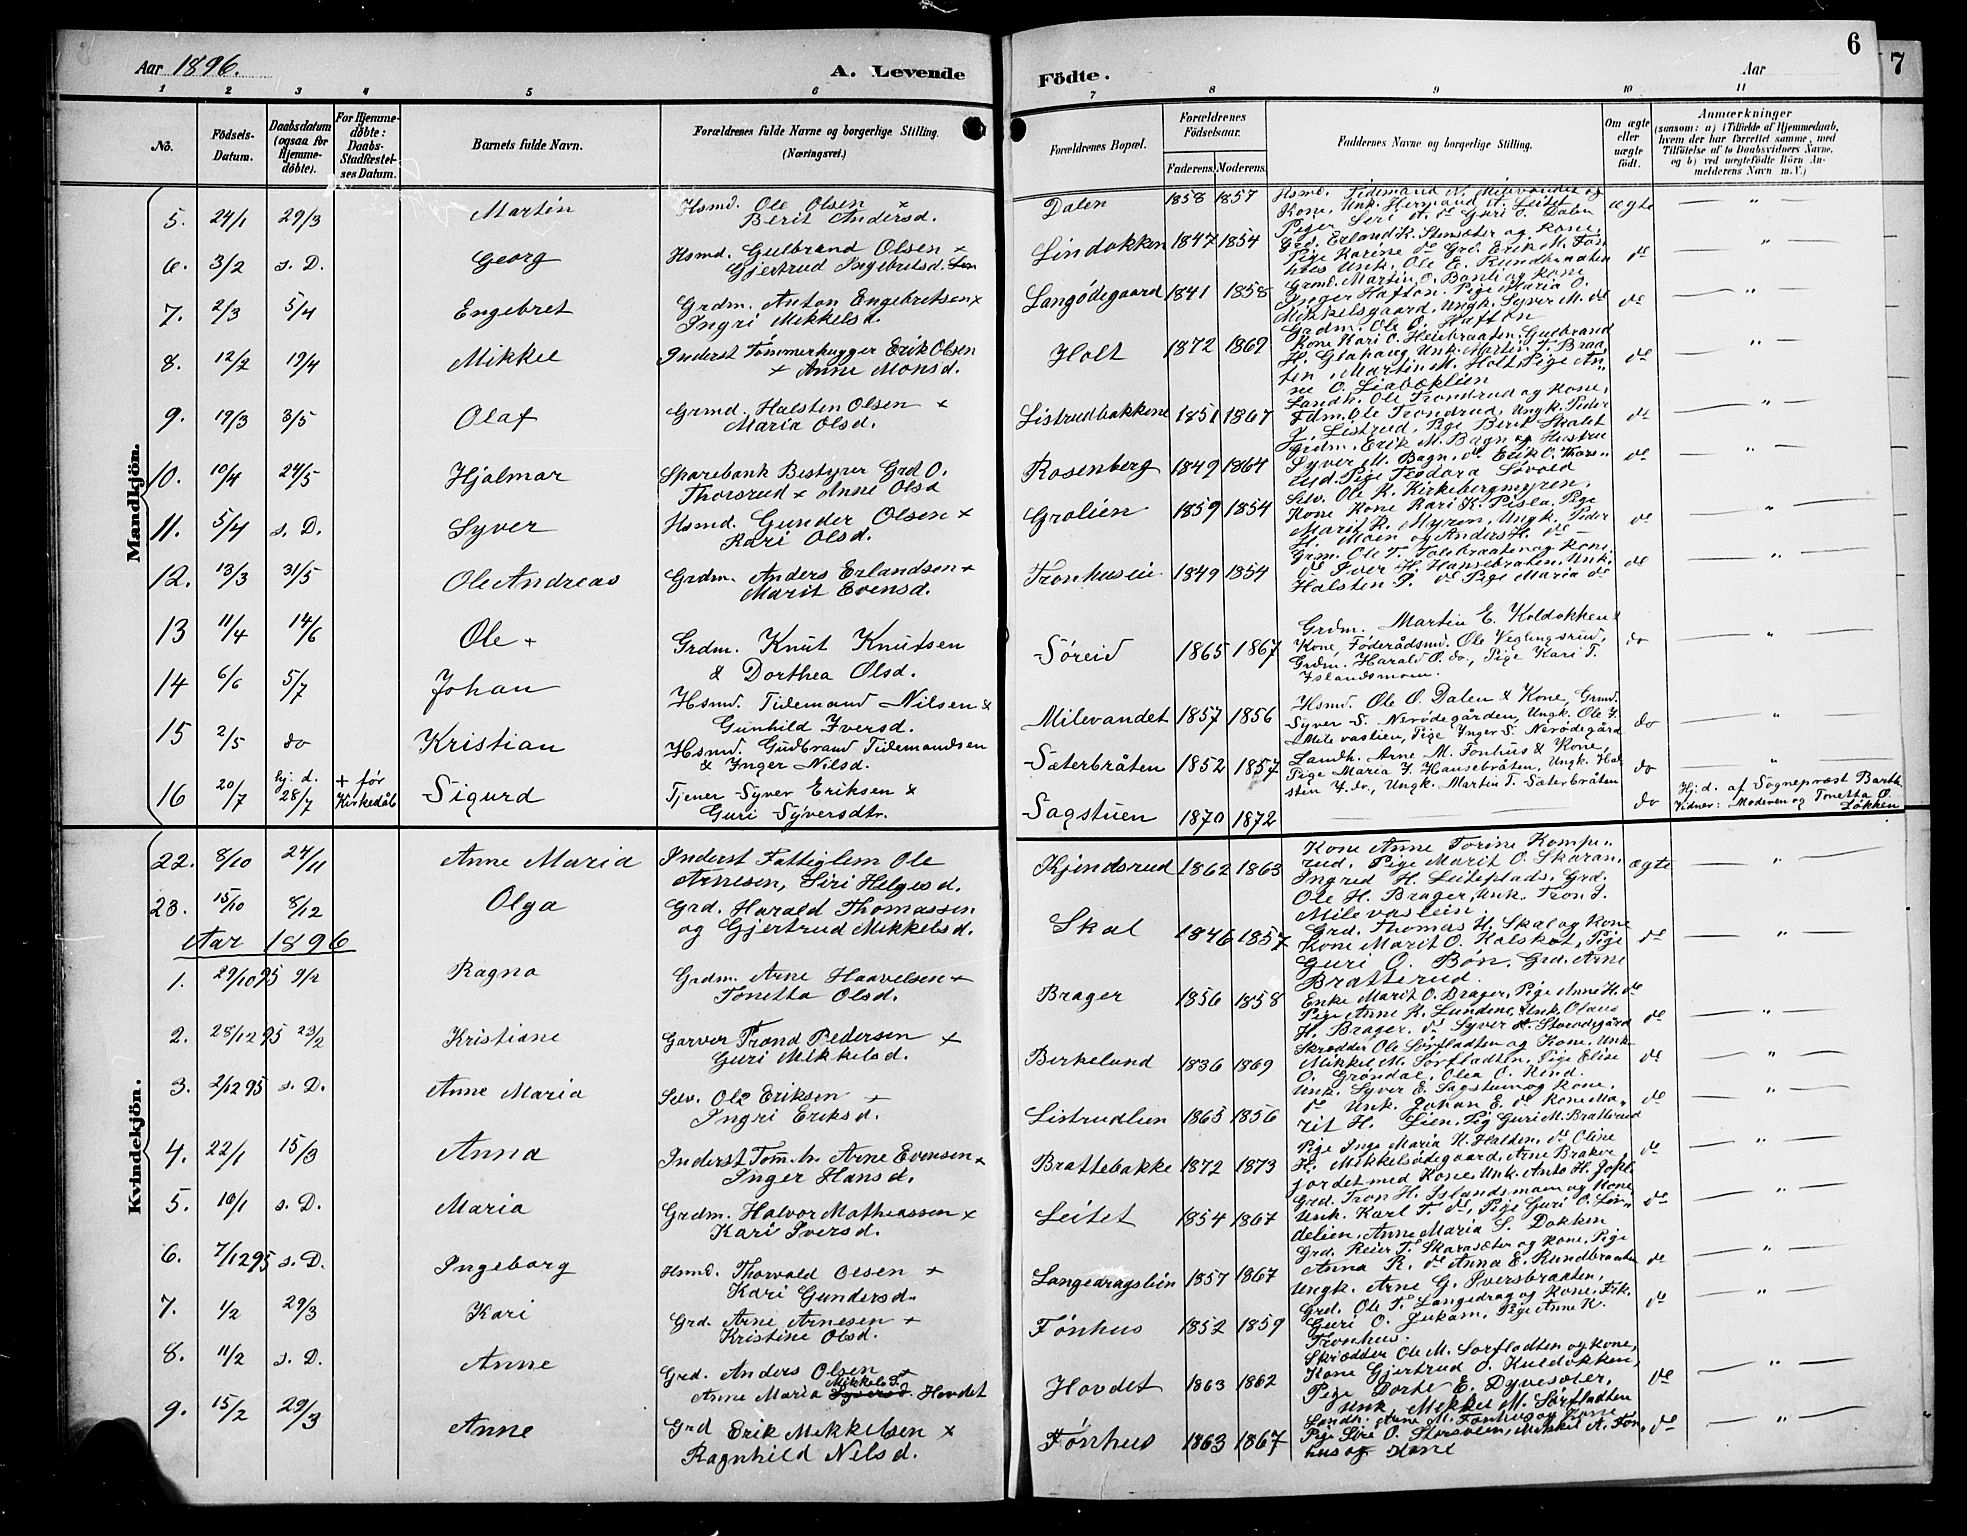 6
7
Aar 1896.
A. Levende
Födte.
Aar
1 2 3 4 5 6 7 8 9 10 11
No.
Födsels-
Datum.
Daabsdatum
(ogsaa for
Hjemme-
døbte).
For Hjemme-
døbte:
Daabs-
Stadfæstel-
ses Datum.
Barnets fulde Navn.
Forældrenes fulde Navne og borgerlige Stilling.
(Næringsvei.)
Forældrenes Bopæl.
Forældrenes
Födselsaar.
Faderens. Moderens.
Faddernes Navne og borgerlige Stilling.
Om ægte
eller
uægte
født.
Anmærkninger
(saasom: a) i Tilfælde af Hjemmedaab,
hvem der har forrettet samme, med
Tilföielse af to Daabsvidners Navne,
og b) ved uægtefödte Börn An-
melderens Navn m. V.)
Mandkjön.
5. 24/1 29/3 Martin Hsmd. Ole Olsen ×
Berit Andersd. Dalen 1858 1857 Hsmd. Tidemand N. Milevandet og
Kone, Unk. Hermand A. Leitet ægte "
Pige Siri A. de Guri T. Dalen
6. 3/2 s. D. Georg Hsmd. Gulbrand Olsen ×
Gjertrud Ingebretsd. Lindokken 1847 1854 Grd. Erland K. Stensæter og Kone,
Pige Karine de Grd. Erik M. Føn-
hus Unk. Ole E. Rundbraaten de "
7. 2/3 5/4 Engebret Grdm. Anton Engebretsen ×
Ingri Mikkelsd. Langødegaard 1841 1858 Grmd. Martin O. Bonli og Kone
Inger Hafton. Pige Maria O.
Mikkelsgaard, Ungk. Syver M. de de "
Grdm. Ole O. Hafton
8. 12/2 19/4 Mikkel Inderst Tømmerhugger Erik Olsen
× Anne Monsd. Holt 1872 1869 Kone Kari O. Heiebraaten, Gulbrand
H. Glahaug, Unk. Martin T. Braa
ten, Martin M. Holt, Pige An- de "
ne O. Liabæklien
9. 19/3 3/5 Olaf Grmd. Halsten Olsen ×
Maria Olsd. Listrudbakkene 1851 1867 Landh. Ole Trondrud og Kone,
Fdm. Ole Trondrud, Ungk. Peder
J. Listrud, Pige Berit Skalet de "
10. 19/4 24/5 Hjalmar Sparebank Bestyrer Grd O.
Thorsrud × Anne Olsd Rosenberg 1849 1864 Grdm. Erik M. Bagn og Hustru
Syver M. Bagn, de Erik O. Thors-
rud. Pige Teodora Søvold de "
11. 5/4 s. D. Syver Hsmd. Gunder Olsen ×
Kari Olsd. Grolien 1859 1854 Selv. Ole K. Kirkebergmyren,
Kone Kone Kari K. Pisla, Pige
Marit K. Myren, Ungk. Peder de "
H. Moen og Anders H. de
12. 13/3 31/5 Ole Andreas Grdm. Anders Erlandsen ×
Marit Evensd. Fronhusei 1849 1854 Grm. Ole T. Tolebraaten og Kone
de Iver H. Hansebraten, Unk.
Halsten I. de Pige Maria de de "
13 11/4 14/6 Ole + Grdm. Knut Knutsen
& Dorthea Olsd. Søreid 1865 1867 Grdm. Martin E. Koldokken &
Kone, Føderådsmd. Ole Veglingsrud,
Grdm. Harald O. do, Pige Kari T.
Islandsmoen. do "
14 6/6 5/7 Johan Hsmd. Tidemand Nilsen &
Gunhild Iversd. Milevandet 1857 1856 Hsmd. Ole O. Dalen & Kone, Grmd.
Syver S. Nerødegården, Ungk. Ole I.
Milevaslien, Pige Inger S. Nerødegård do "
15 2/5 do Kristian Hsmd. Gudbrand Tidemandsen
& Inger Nilsd. Sæterbråten 1852 1857 Landh. Arne M. Fonhus & Kone,
Pige Maria I. Hansebråten, Ungk. Hal
sten I. do, Ungk. Martin T. Sæterbråten do "
16 20/7 hj. d. 28/7 + før
Kirkedåb Sigurd Tjener Syver Eriksen &
Guri Syversdtr. Sagstuen 1870 1872 do Hj: d. af Sognepræst Barth.
Vidner: Moderen og Tonetta O.
Løkken
Kvindekjön.
22. 8/10 24/11 Anne Maria Inderst Fattiglem Ole
Arnesen, Siri Helgesd. Kjendsrud 1862 1863 Kone Anne Torine Kompe-
rud, Pige Marit O. Skaran,
Ingred H. Leiteplads, Grd.
Ole H. Brager, Unk. Tron I.
Milevaslein ægte "
23. 15/10 8/12 Olga Grd. Harald Thomassen
og Gjertrud Mikkelsd. Skal 1846 1857 Grd. Thomas H. Skal og Kone
Kone Marit O. Kalsket, Pige
Guri O. Bøn, Grd. Arne
Bratterud. de "
Aar 1896
1. 29/10 95 9/2 Ragna Grdm. Arne Haavelsen ×
Tonetta Olsd. Brager 1856 1858 Enke Marit O. Brager, Pige Anne H. de
Pige Anne K. Lundene, Unk. Olaus
H. Brager, de Syver A. Storødegård de "
2. 28/12 95 23/2 Kristiane Garver Trond Pedersen ×
Guri Mikkelsd. Birkelund 1836 1869 Skrædder Ole Sørfladten og Kone, Unk.
Mikkel M. Sørfladten, Pige Elise
O. Grøndal, Olea O. Rind. de "
3. 2/12 95 s. D. Anne Maria Selv. Ole Eriksen ×
Ingri Eriksd. Listrudlien 1863 1856 Unk. Syver E. Sagstuen og Kone,
de Unk. Johan E. de Kone Ma-
rit H. Lien, Pig Guri M. Bratterud de "
4. 22/1 15/3 Anna Inderst Tøm. h. Arne Evensen ×
Inger Hansd. Brattebakke 1872 1873 Pige Inge Maria K. Halden, de Oline
H. Mikkelsødegaard, Arne Braker,
jordet med Kone, Unk. Anto H. de "
5. 10/1 s. D. Maria Grdm. Halvor Matheassen ×
Kari Iversd. Leitet 1854 1867 Grd. Tron H. Islandsmoen og Kone
Unk. Karl T. de, Pige Guri O. Lin-
delien, Anne Maria S. Dokken de "
6. 7/12 95 s. D. Ingeborg Hsmd. Thorvald Olsen ×
Kari Gundersd. Langedragslien 1857 1867 Grd. Reier T. Skarasæter og Kone, Pige
Anna R. de Anna E. Rundbraaten
Ungk. Arne G. Iversbraaten, de "
7. 1/2 29/3 Kari Grd. Arne Arnesen ×
Kristine Olsd. Fønhus 1852 1859 Grd. Ole T. Langedrag og Kone, Frk.
Guri O. Jukam, Pige Anne K.
Fronhus. de "
8. 11/2 s. D. Anne Grd. Anders Olsen ×
Anne Maria Mikkelsd. Syversd. Hovdet Hovdet 1863 1862 Skrædder Ole M. Sørfladten og Kone,
Kone Gjertrud O. Kuldokken,
Pige Dorte E. Dyvesæter,
Unk. Mikkel M. Sørfladten de "
9. 15/2 29/3 Anne Grd Erik Mikkelsen ×
Ragnhild Nilsd. Fønhus 1863 1867 Landh. Arne M. Fønhus og Kone
Pige Siri O. Storsveen, Mikkel A. Føn
hus og Kone de "